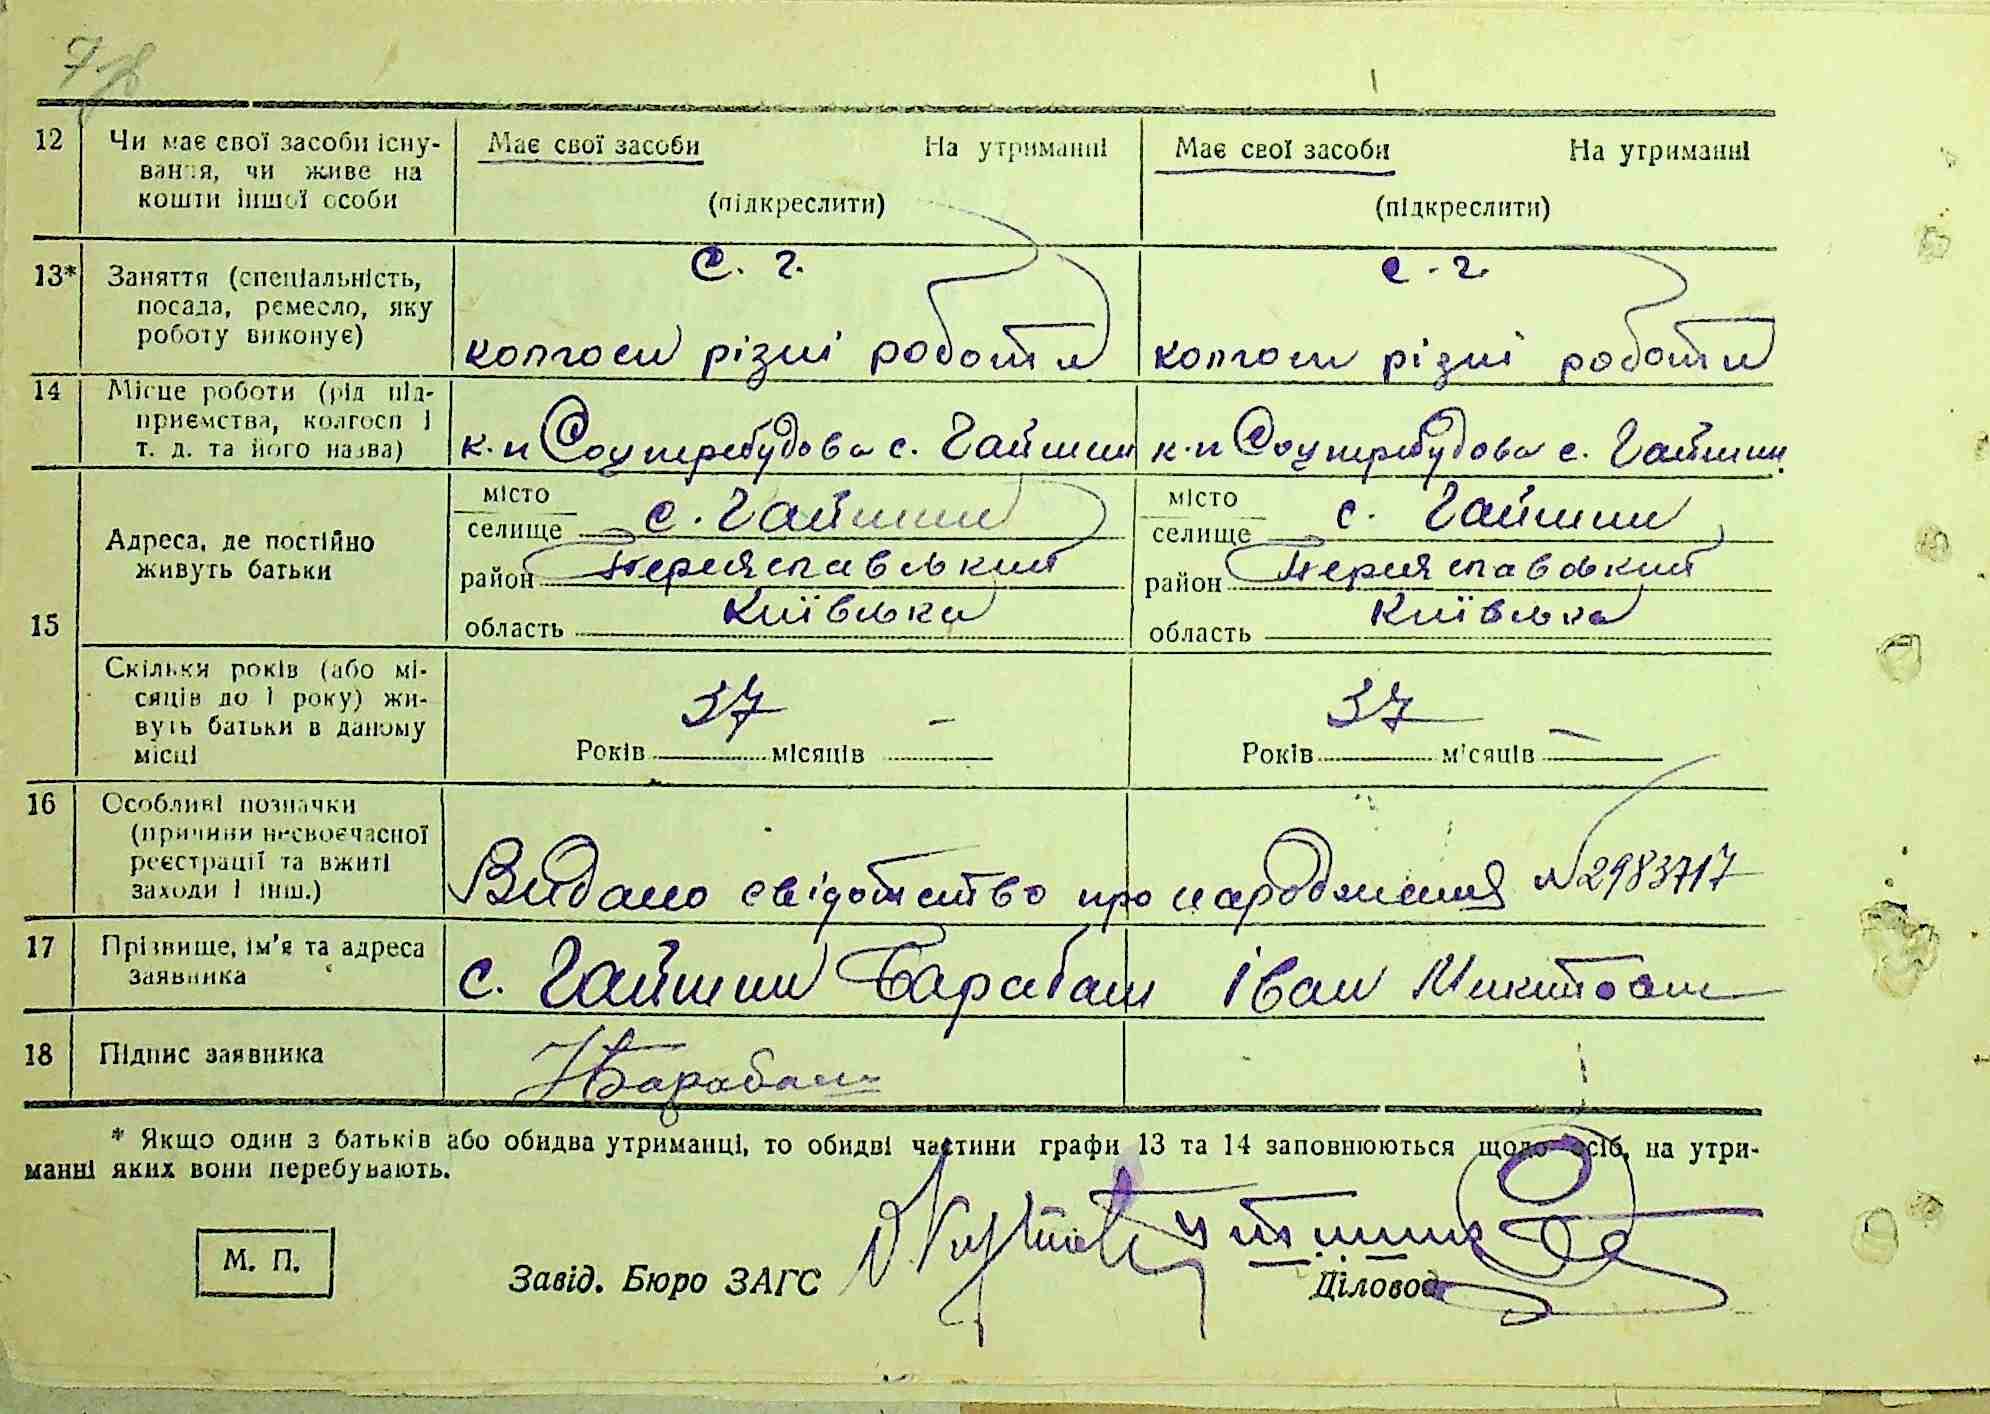 12 Чи має свої засоби існу-
вання, чи живе на
кошти іншої особи
Має свої засоби На утриманні
(підкреслити)
Має свої засоби На утриманні
(підкреслити)
13* Заняття (спеціальність,
посада, ремесло, яку
роботу виконує)
с. г.
колгосп різні роботи
с. г.
колгосп різні роботи
14 Місце роботи (рід під-
приємства, колгосп і
т. д. та його назва)
к-п Соцперебудова с. Гайшин
к-п Соцперебудова с. Гайшин
15 Адреса, де постійно
живуть батьки
місто
селище с. Гайшин
район Переяславський
область Київська
місто
селище с. Гайшин
район Переяславський
область Київська
Скільки років (або мі-
сяців до 1 року) жи-
вуть батьки в даному
місці
37 -
Років місяців
37 -
Років місяців
16 Особливі позначки
(причини несвоєчасної
реєстрації та вжиті
заходи і інш.)
Видано свідотство про народження №2983717
17 Прізвище, ім'я та адреса
заявника
с. Гайшин Барабаш Іван Микитович
18 Підпис заявника
Барабаш
* Якщо один з батьків або обидва утриманці, то обидві частини графи 13 та 14 заповнюються щодо осіб, на утри-
манні яких вони перебувають.
М. П.
Завід. Бюро ЗАГС
Діловод